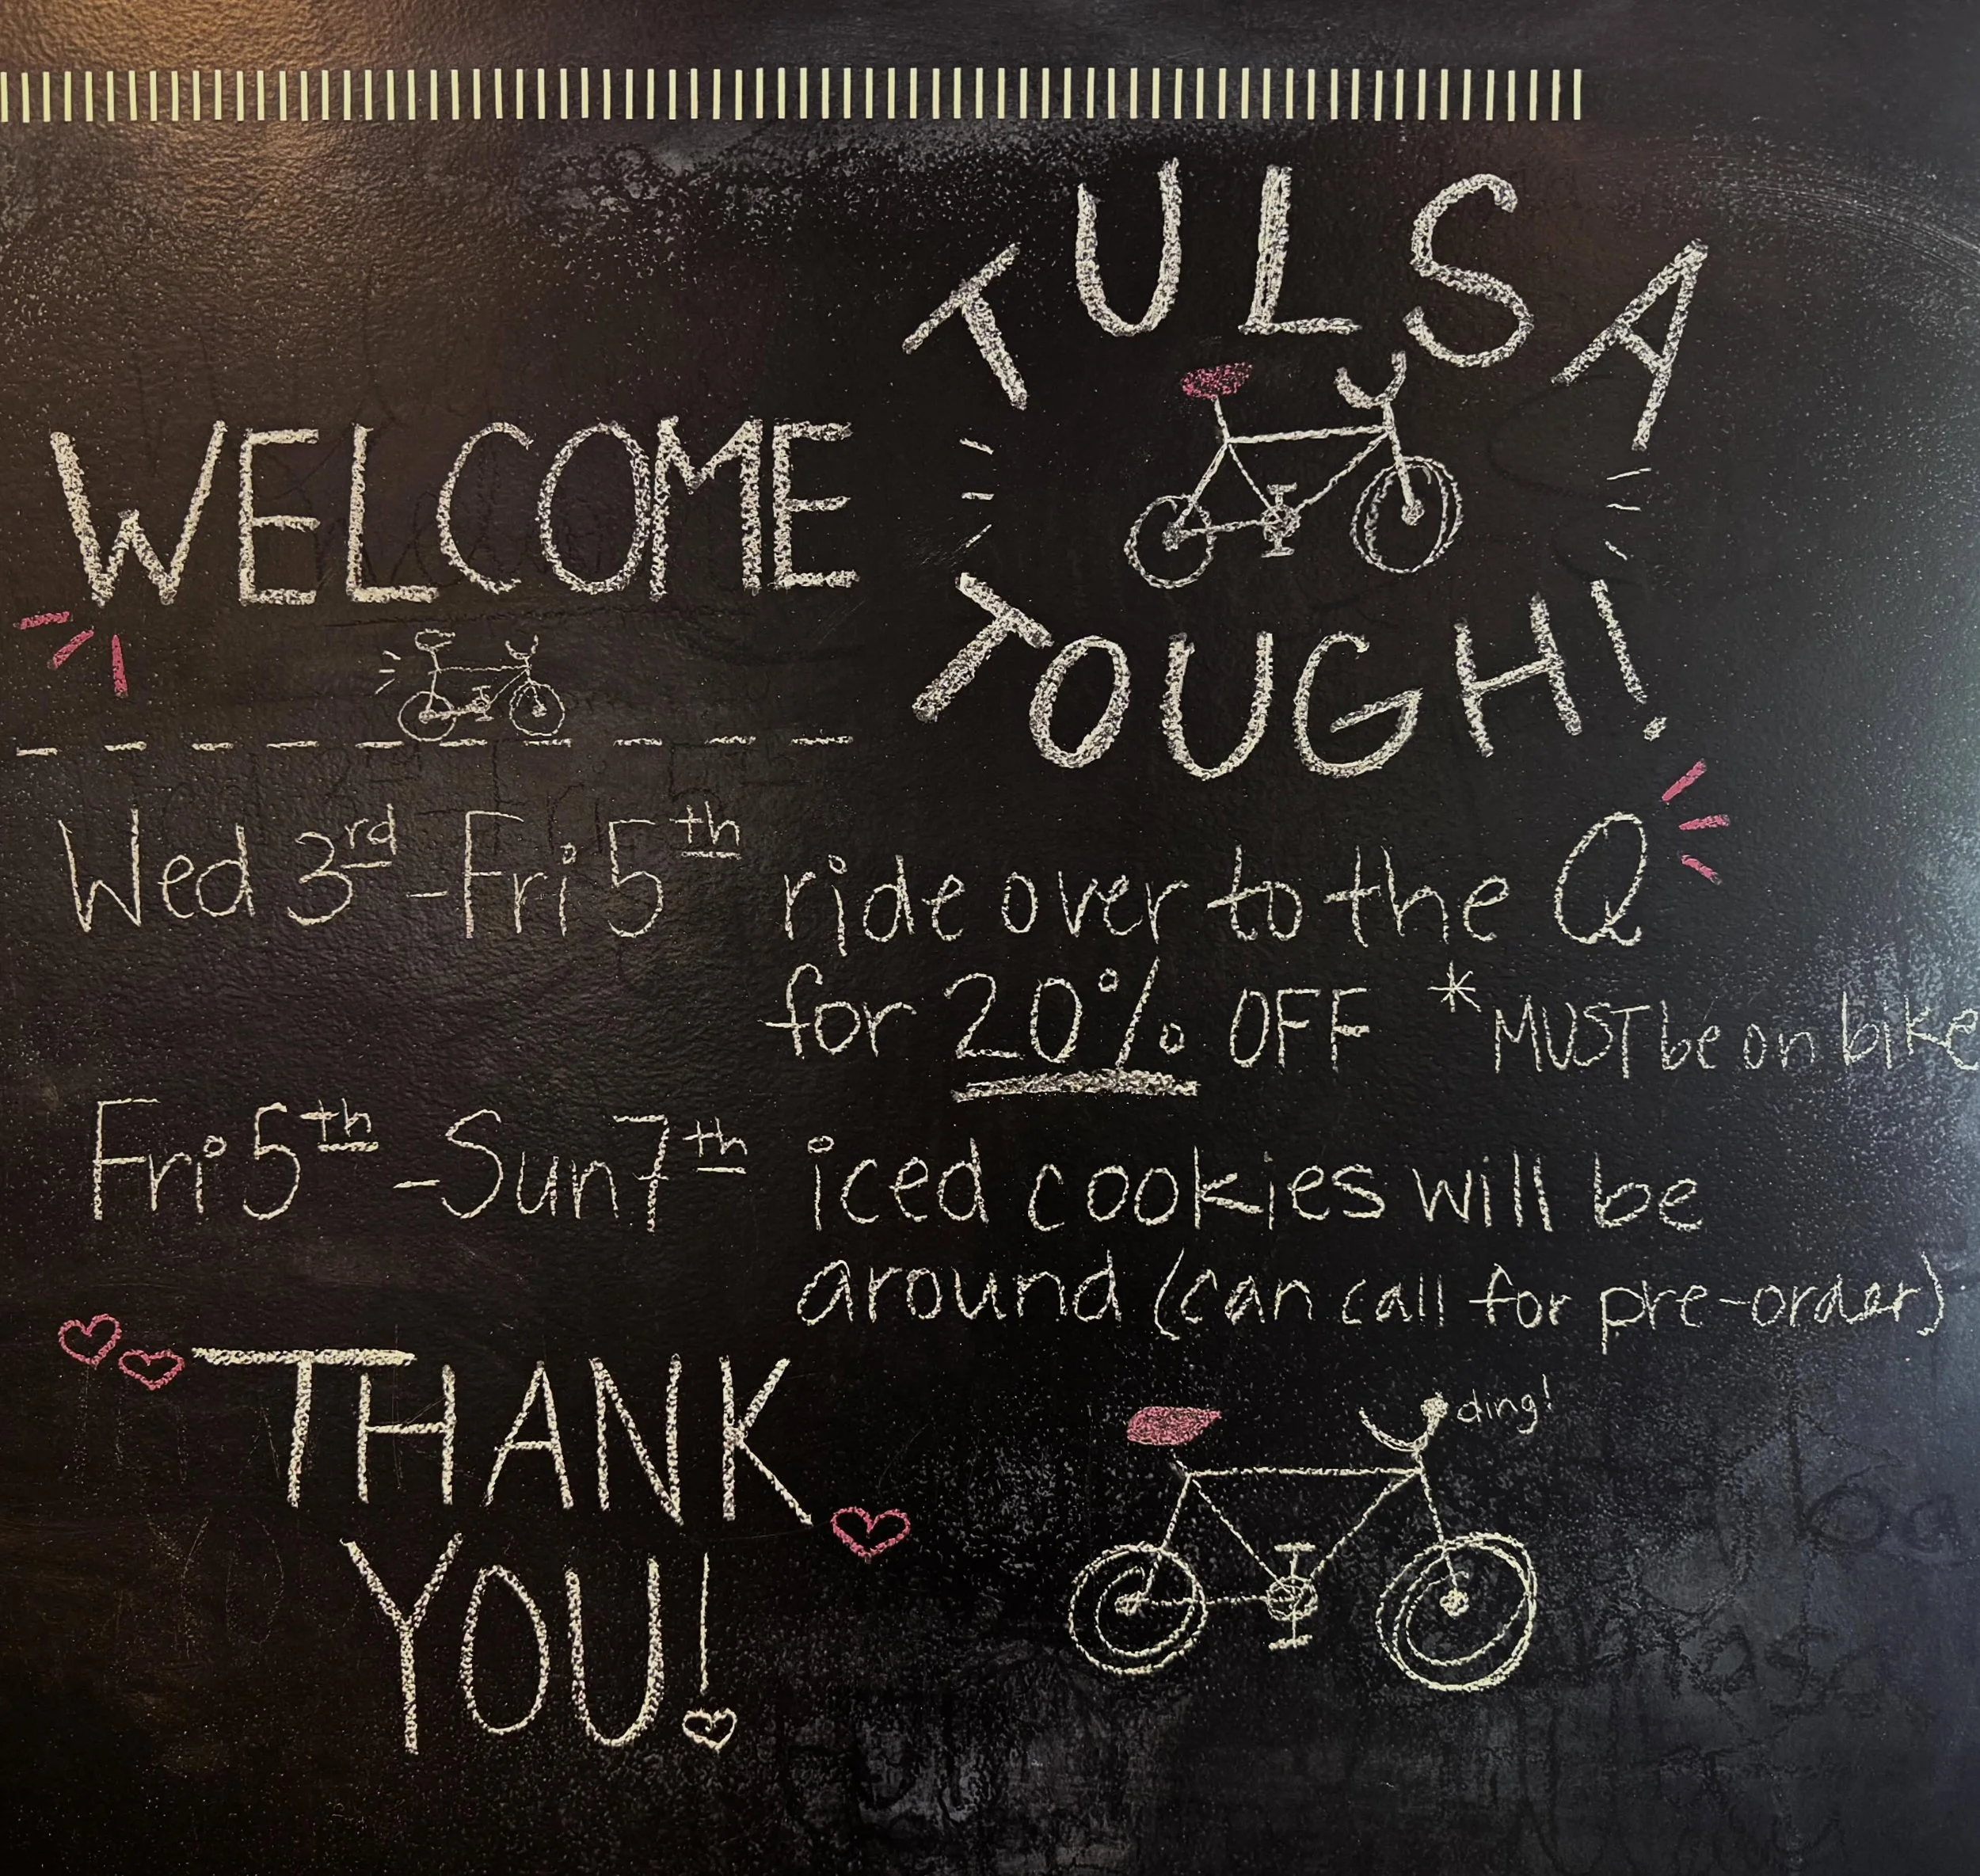 WELCOME
TULSA
TOUGH!
Wed 3rd - Fri 5th ride over to the Q
for 20% OFF *MUST be on bike
Fri 5th - Sun 7th iced cookies will be
around (can call for pre-order)
THANK
YOU!
ding!